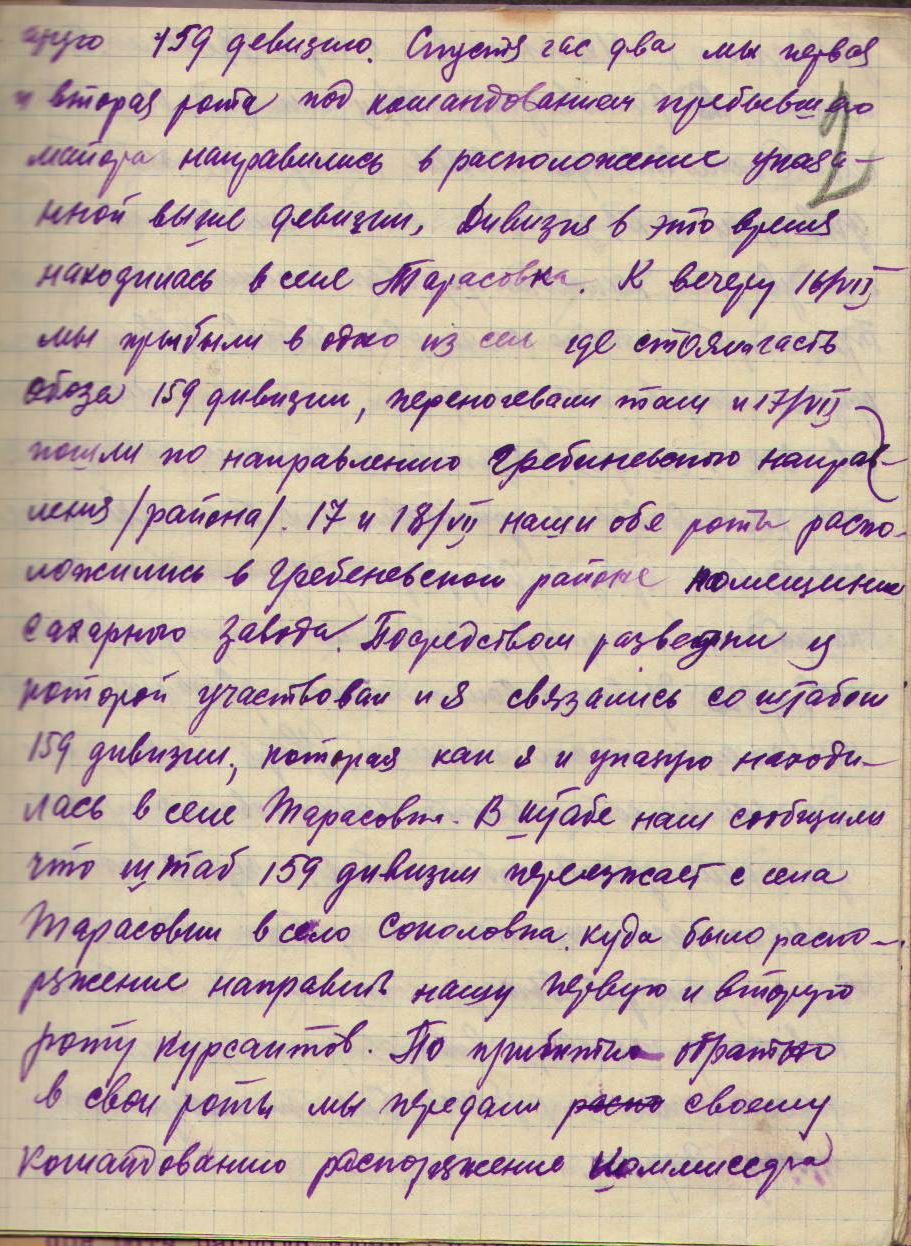 159 девизию. Спустя час два мы первая
и вторая рота под командованием пребывшего
2
майора направились в расположение указа-
нной выше девизии, Дивизия в это время
находилась в селе Тарасовка. К вечеру 16/VII
мы прыбыли в одно из сел где стояла часть
обоза 159 дивизии, переночевали там и 17/VII
пошли по направлению Гребиневского направ-
ления /района/. 17 и 18/VII наши обе роты распо-
ложились в Гребеневском районе помещении
сахарного завода. Посредством разведки у
которой участвовал и я связались со штабом
159 дивизии, которая как я и указую находи-
лась в селе Тарасовки. В штабе нам сообщили
что штаб 159 дивизии переезжает с села
Тарасовки в село Соколовка, куда было распо-
ряжение направить нашу первую и вторую
роту курсантов. По прибытию обратно
в свои роты мы передали распо своему
командованию распоряжение Коммиссара